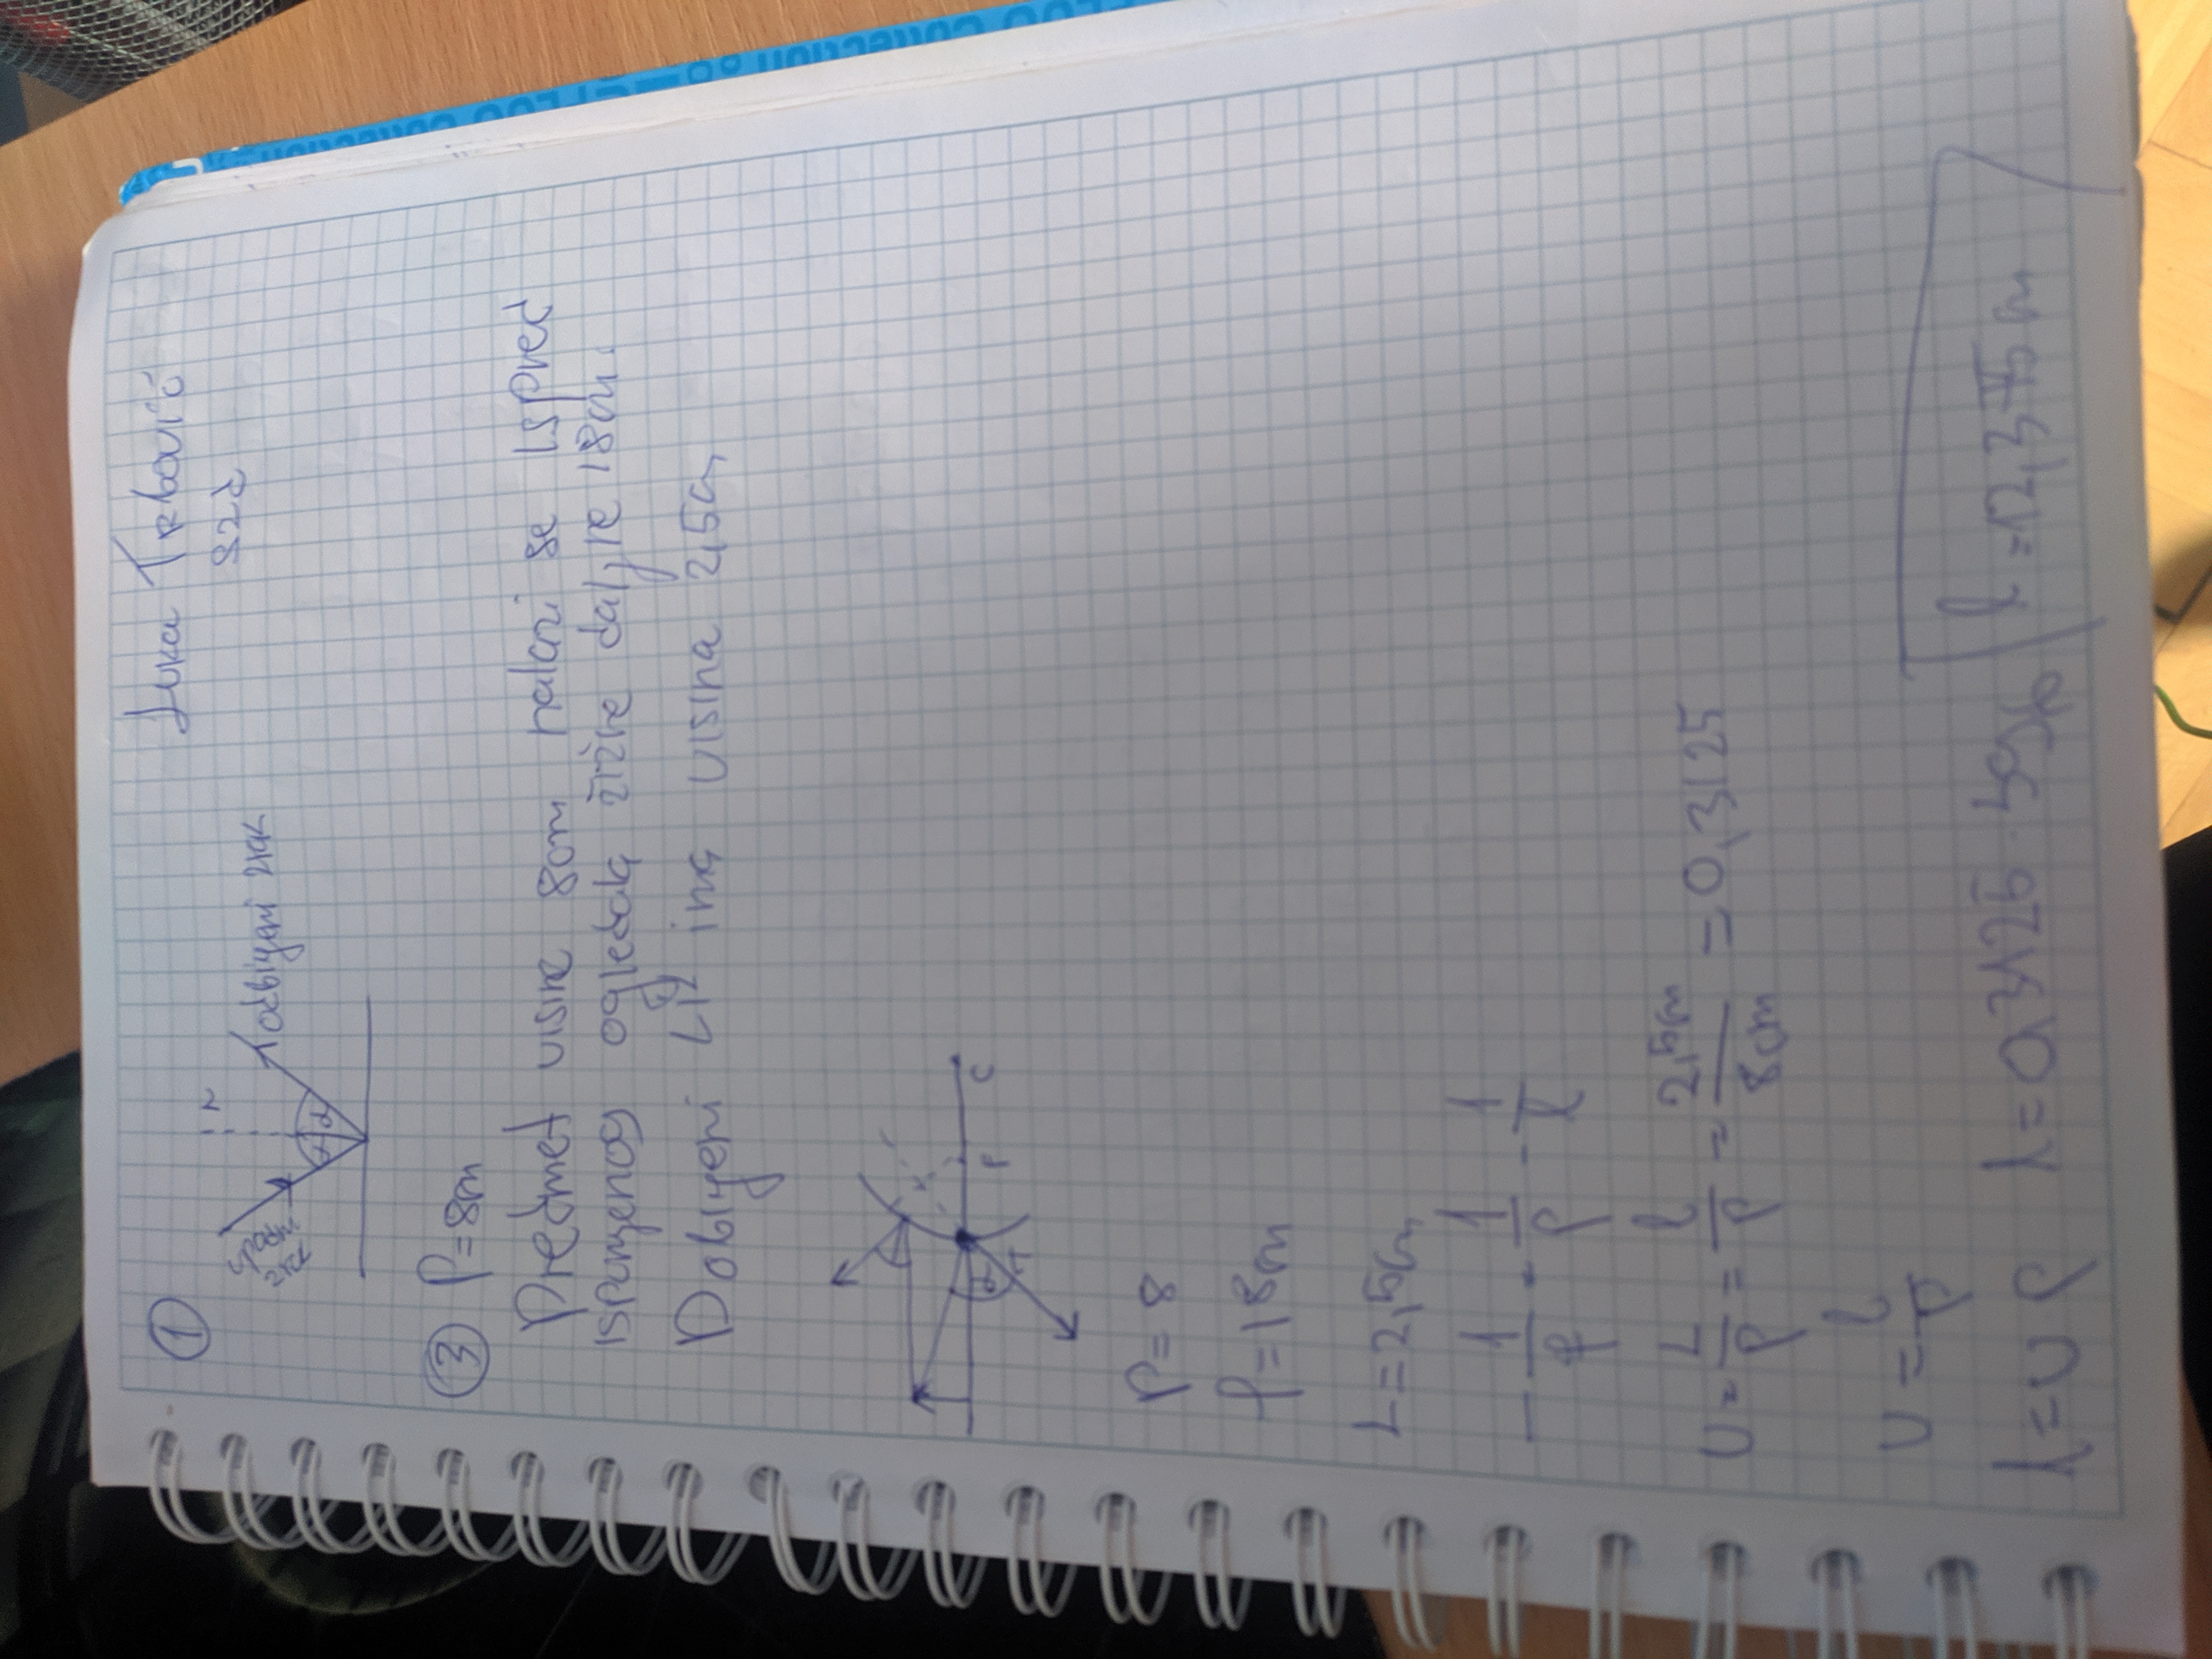 ① Luka Trbović
82d
N
upadni
zrak
odbijeni zrak
α α
③ P=8cm
Predmet visine 8cm nalazi se ispred
ispupčenog ogledala žižne daljine 18cm.
Dobijeni lik ima visina 2,5cm
α F C
P= 8
f=18cm
L=2,5cm
- 1/f = 1/p - 1/l
U = L/P = l/p = 2,5cm/8cm = 0,3125
U = l/p
l=U p l=0,3125 · l=12,375cm